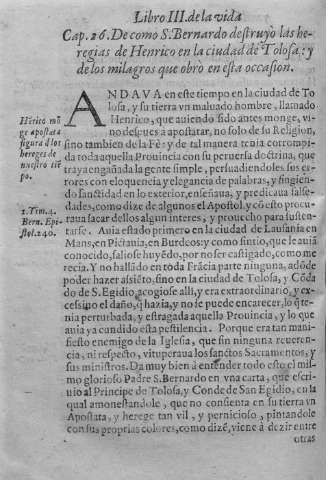 Libro III. de la vida
Cap. 26. De como S. Bernardo destruyo las he-
regias de Henrico en la ciudad de Tolosa: y
de los milagros que obrò en esta occasion.
ANDAVA en este tiempo en la ciudad de To
losa, y su tierra vn maluado hombre, llamado
Henrico, que auiendo sido antes monge, vi-
no despues a apostatar, no solo de su Religion,
sino tambien de la Fè: y de tal manera tenia corrompi-
da toda aquella Prouincia con su peruersa doctrina, que
traya engañada la gente simple, persuadiendoles sus er-
rores con eloquencia y elegancia de palabras, y fingien-
do sanctidad en lo exterior, enseñaua, y predicaua false-
dades, como dize de algunos el Apostol, y cõ esto procu-
raua sacar dellos algun interes, y prouecho para susten-
tarse. Auia estado primero en la ciudad de Lausania en
Mans, en Pictauia, en Burdeos: y como sintio, que le auiã
conocido, saliose huyẽdo, por no ser castigado, como me
recia. Y no hallãdo en toda Frãcia parte ninguna, adõde
poder hazer assiẽto, sino en la ciudad de Tolosa, y Cõda
do de S. Egidio, acogiose alli, y era extraordinario, y ex-
cessiuo el daño, q̃ hazia, y no se puede encarecer, lo q̃ te-
nia perturbada, y estragada aquella Prouincia, y lo que
auia ya cundido esta pestilencia. Porque era tan mani-
fiesto enemigo de la Iglesa, que sin ninguna reueren-
cia, ni respecto, vituperaua los sanctos Sacramentos, y
sus ministros. Da muy bien à entender todo esto el mis-
mo glorioso Padre S. Bernardo en vna carta, que escri-
uio al Principe de Tolosa, y Conde de San Egidio, en la
qual amonestandole, que no consienta en su tierra vn
Apostata, y herege tan vil, y pernicioso, pintandole
con sus proprias colores, como dizẽ, viene à dezir entre
otras
Hẽrico mõ
ge apostata
figura d̃ los
hereges de
nuestro tiẽ
po.
1. Tim. 4.
Bern. Epi-
stol. 240.